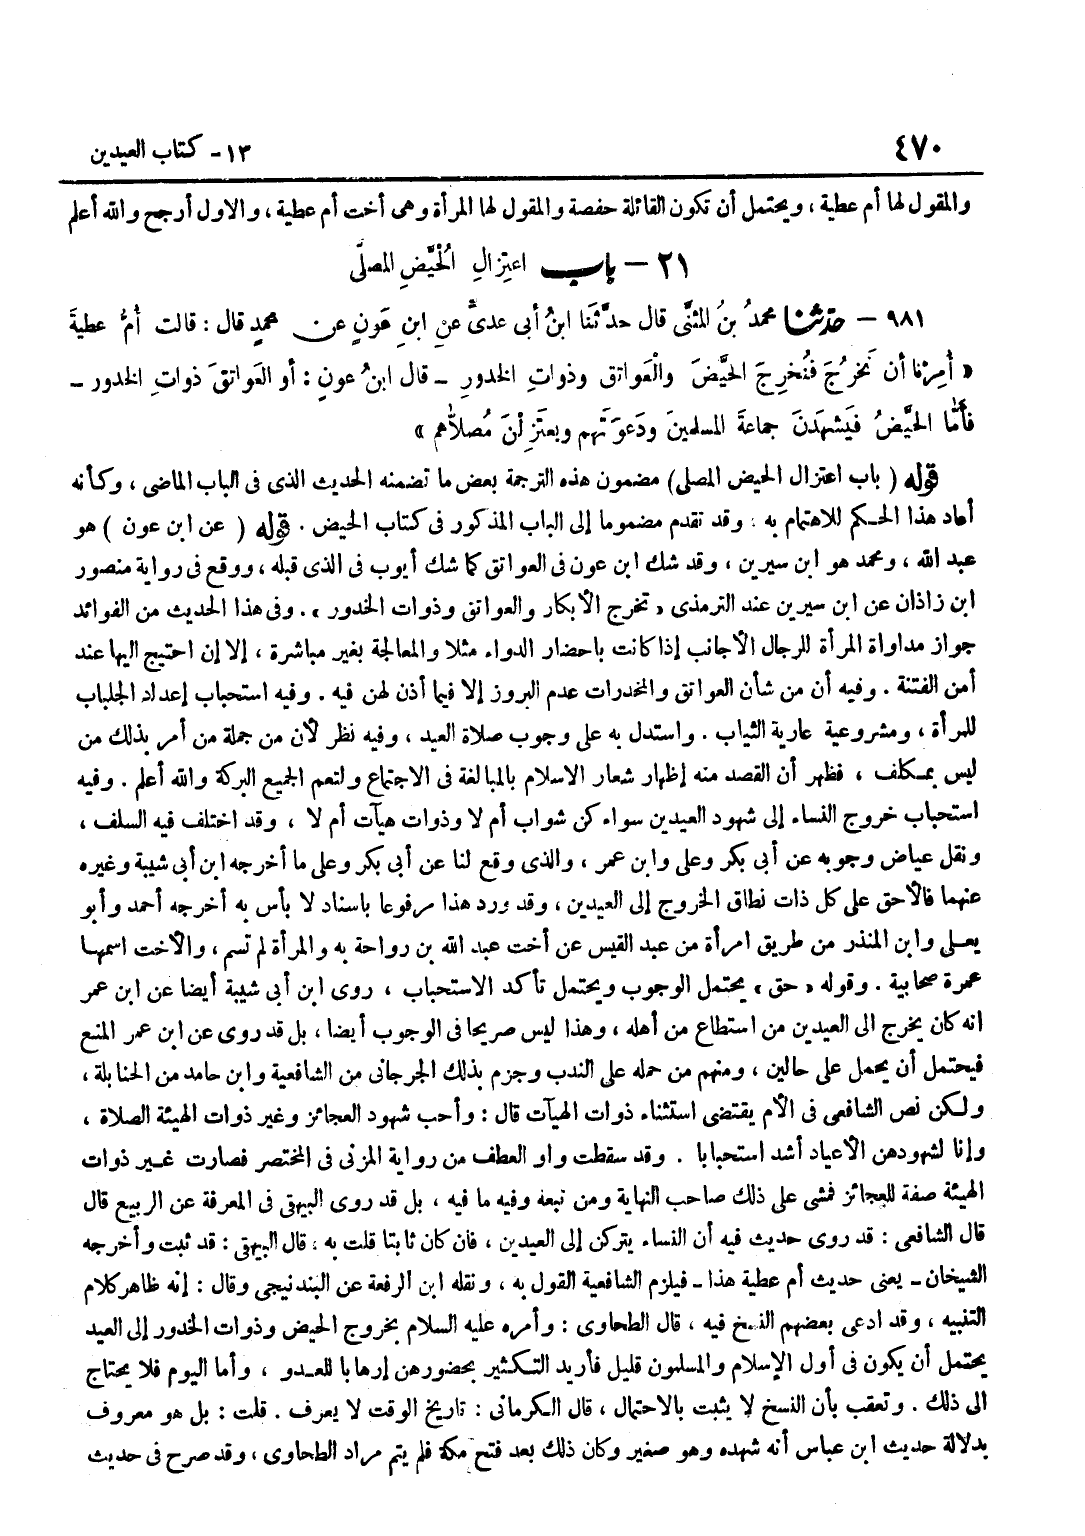 ٤٧٠
١٣ - كتاب العيدين
والمقول لها أم عطية ، ويحتمل أن تكون القائلة حفصة والمقول لها المرأة وهى أخت أم عطية ، والاول أرجح والله أعلم
٢١ - باب اعتِزالِ الْحُيَّضِ المصلَّى
٩٨١ - حدثنا محمدُ بنُ المثنَّى قال حدَّثَنا ابنُ أبى عدىٍّ عنِ ابنِ عَونٍ عن محمدٍ قال : قالت أُمُّ عطيةَ
« أُمِرْنا أن نَخرُجَ فنُخرِجَ الحيَّضَ والْعواتق وذواتِ الخدورِ - قال ابنُ عونٍ : أو العَواتقَ ذواتِ الخدور -
فأمَّا الحيَّضُ فيَشهدْنَ جماعةَ المسلمينَ ودَعوَتَهم ويعتَزِلْنَ مُصلاَّهم »
قوله ( باب اعتزال الحيض المصلى ) مضمون هذه الترجمة بعض ما تضمنه الحديث الذى فى الباب الماضى ، وكأنه
أعاد هذا الحكم للاهتمام به . وقد تقدم مضموما إلى الباب المذكور فى كتاب الحيض . قوله ( عن ابن عون ) هو
عبد الله ، ومحمد هو ابن سيرين ، وقد شك ابن عون فى العواتق كما شك أيوب فى الذى قبله ، ووقع فى رواية منصور
ابن زاذان عن ابن سيرين عند الترمذى « تخرج الأبكار والعواتق وذوات الخدور » . وفى هذا الحديث من الفوائد
جواز مداواة المرأة للرجال الأجانب إذا كانت باحضار الدواء مثلا والمعالجة بغير مباشرة ، إلا إن احتيج اليها عند
أمن الفتنة . وفيه أن من شأن العواتق والمخدرات عدم البروز إلا فيما أذن لهن فيه . وفيه استحباب إعداد الجلباب
للمرأة ، ومشروعية عارية الثياب . واستدل به على وجوب صلاة العيد ، وفيه نظر لأن من جملة من أمر بذلك من
ليس بمكلف ، فظهر أن القصد منه إظهار شعار الاسلام بالمبالغة فى الاجتماع ولتعم الجميع البركة والله أعلم . وفيه
استحباب خروج النساء إلى شهود العيدين سواء كن شواب أم لا وذوات هيآت أم لا ، وقد اختلف فيه السلف ،
ونقل عياض وجوبه عن أبى بكر وعلى وابن عمر ، والذى وقع لنا عن أبى بكر وعلى ما أخرجه ابن أبى شيبة وغيره
عنهما قالا حق على كل ذات نطاق الخروج إلى العيدين ، وقد ورد هذا مرفوعا باسناد لا بأس به أخرجه أحمد وأبو
يعلى وابن المنذر من طريق امرأة من عبد القيس عن أخت عبد الله بن رواحة به والمرأة لم تسم ، والأخت اسمها
عمرة صحابية . وقوله « حق » يحتمل الوجوب ويحتمل تأكد الاستحباب ، روى ابن أبى شيبة أيضا عن ابن عمر
انه كان يخرج الى العيدين من استطاع من أهله ، وهذا ليس صريحا فى الوجوب أيضا ، بل قد روى عن ابن عمر المنع
فيحتمل أن يحمل على حالين ، ومنهم من حمله على الندب وجزم بذلك الجرجانى من الشافعية وابن حامد من الحنابلة ،
ولكن نص الشافعى فى الأم يقتضى استثناء ذوات الهيآت قال : وأحب شهود العجائز وغير ذوات الهيئة الصلاة ،
وإنا لشهودهن الأعياد أشد استحبابا . وقد سقطت واو العطف من رواية المزنى فى المختصر فصارت غير ذوات
الهيئة صفة للعجائز فمشى على ذلك صاحب النهاية ومن تبعه وفيه ما فيه ، بل قد روى البيهقى فى المعرفة عن الربيع قال
قال الشافعى : قد روى حديث فيه أن النساء يتركن إلى العيدين ، فان كان ثابتا قلت به ، قال البيهقى : قد ثبت وأخرجه
الشيخان - يعنى حديث أم عطية هذا - فيلزم الشافعية القول به ، ونقله ابن الرفعة عن البندنيجى وقال : إنه ظاهر كلام
التنبيه ، وقد ادعى بعضهم النسخ فيه ، قال الطحاوى : وأمره عليه السلام بخروج الحيض وذوات الخدور إلى العيد
يحتمل أن يكون فى أول الإسلام والمسلمون قليل فأريد التكثير بحضورهن إرهابا للعدو ، وأما اليوم فلا يحتاج
الى ذلك . وتعقب بأن النسخ لا يثبت بالاحتمال ، قال الكرمانى : تاريخ الوقت لا يعرف . قلت : بل هو معروف
بدلالة حديث ابن عباس أنه شهده وهو صغير وكان ذلك بعد فتح مكة فلم يتم مراد الطحاوى ، وقد صرح فى حديث